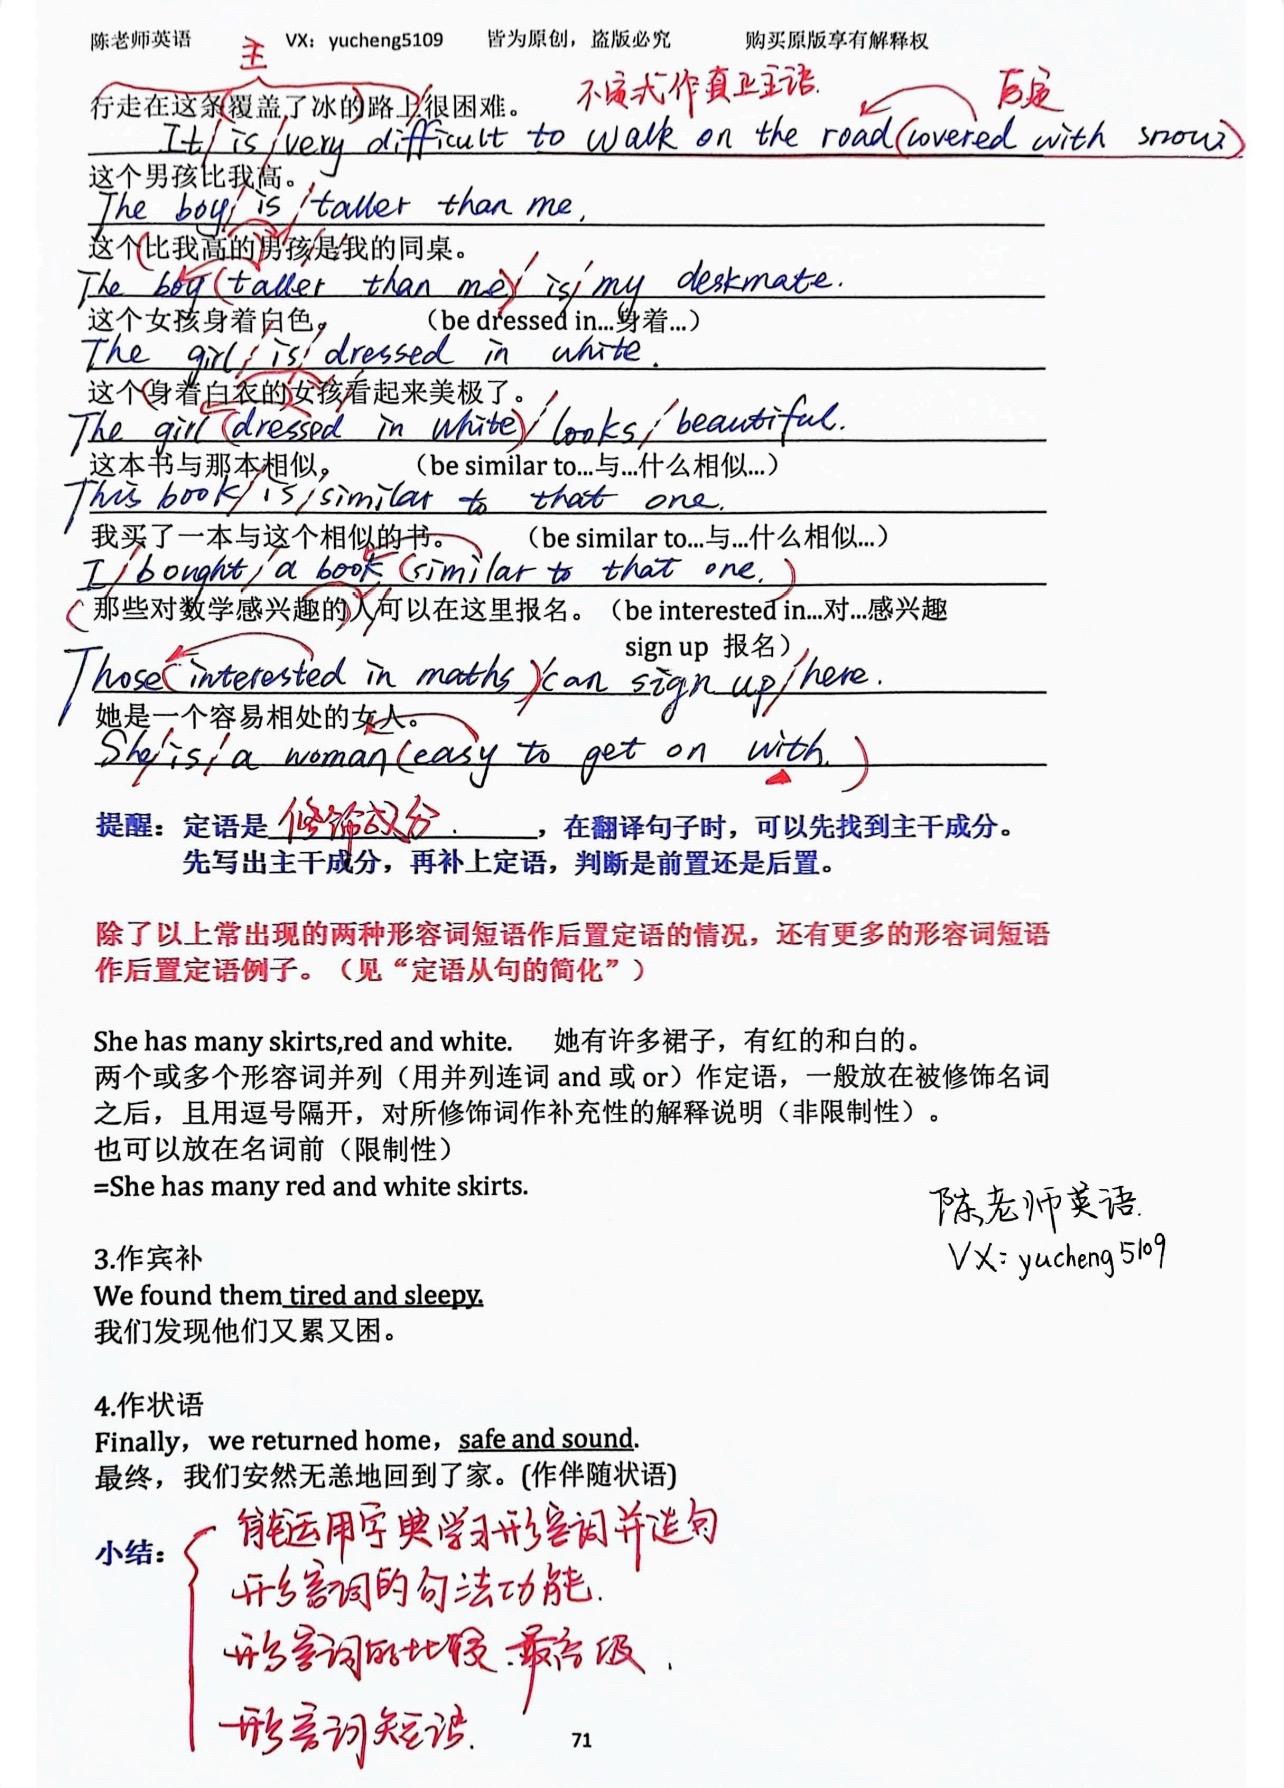 陈老师英语 VX：yucheng5109 皆为原创，盗版必究 购买原版享有解释权
主
不定式作真正主语. 后定
行走在这条覆盖了冰的路上很困难。
It is very difficult to walk on the road (covered with snow)
这个男孩比我高。
The boy is taller than me.
这个(比我高的)男孩是我的同桌。
The boy (taller than me) is my deskmate.
这个女孩身着白色。 （be dressed in...身着...）
The girl is dressed in white.
这个(身着白衣的)女孩看起来美极了。
The girl (dressed in white) looks beautiful.
这本书与那本相似。 （be similar to...与...什么相似...）
This book is similar to that one.
我买了一本与这个相似的书。 （be similar to...与...什么相似...）
I bought a book (similar to that one.)
(那些对数学感兴趣的)人可以在这里报名。（be interested in...对...感兴趣
sign up 报名）
Those (interested in maths) can sign up here.
她是一个容易相处的女人。
She is a woman (easy to get on with.)
提醒：定语是修饰成分.，在翻译句子时，可以先找到主干成分。
先写出主干成分，再补上定语，判断是前置还是后置。
除了以上常出现的两种形容词短语作后置定语的情况，还有更多的形容词短语
作后置定语例子。（见“定语从句的简化”）
She has many skirts,red and white. 她有许多裙子，有红的和白的。
两个或多个形容词并列（用并列连词 and 或 or）作定语，一般放在被修饰名词
之后，且用逗号隔开，对所修饰词作补充性的解释说明（非限制性）。
也可以放在名词前（限制性）
=She has many red and white skirts.
陈老师英语.
VX: yucheng5109
3.作宾补
We found them tired and sleepy.
我们发现他们又累又困。
4.作状语
Finally，we returned home，safe and sound.
最终，我们安然无恙地回到了家。(作伴随状语)
小结： 能运用字典学习形容词并造句
形容词的句法功能.
形容词的比较.最高级.
形容词短语.
71